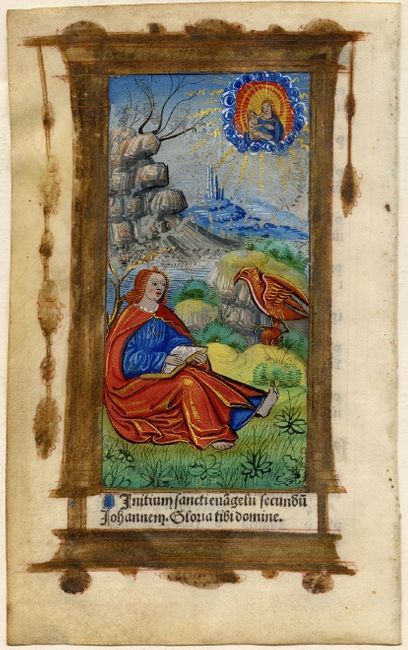 Initium sancti euāgelii secundū
Johannem. Gloria tibi domine.